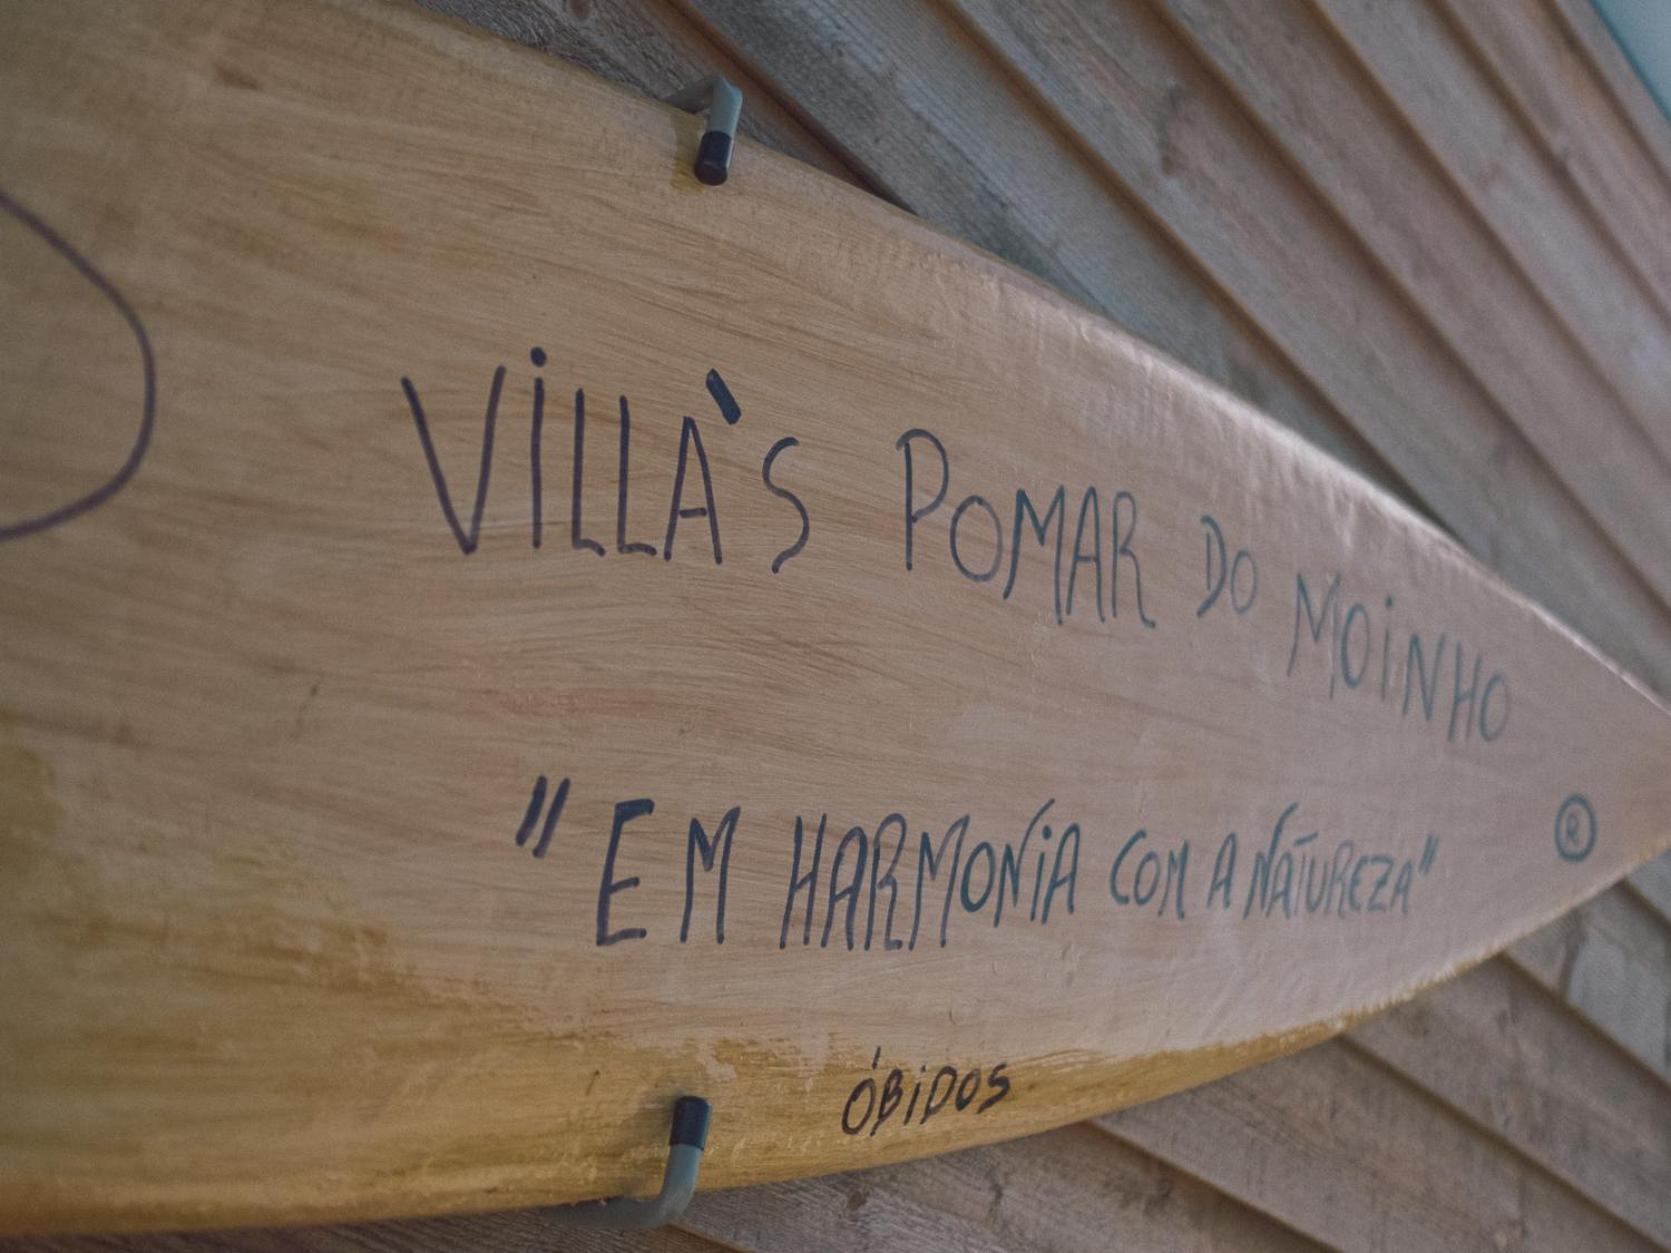 VILLA`S POMAR DO MOINHO
"EM HARMONIA COM A NATUREZA"
®
ÓBIDOS